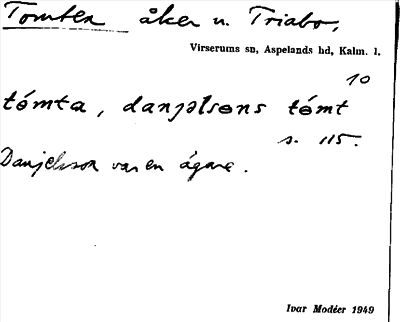 Tomten åker u. Triabo,
Virserums sn, Aspelands hd, Kalm. l.
10
tómta, danjəlsɵns tómt
s. 115.
Danjelsson var en ägare.
Ivar Modéer 1949